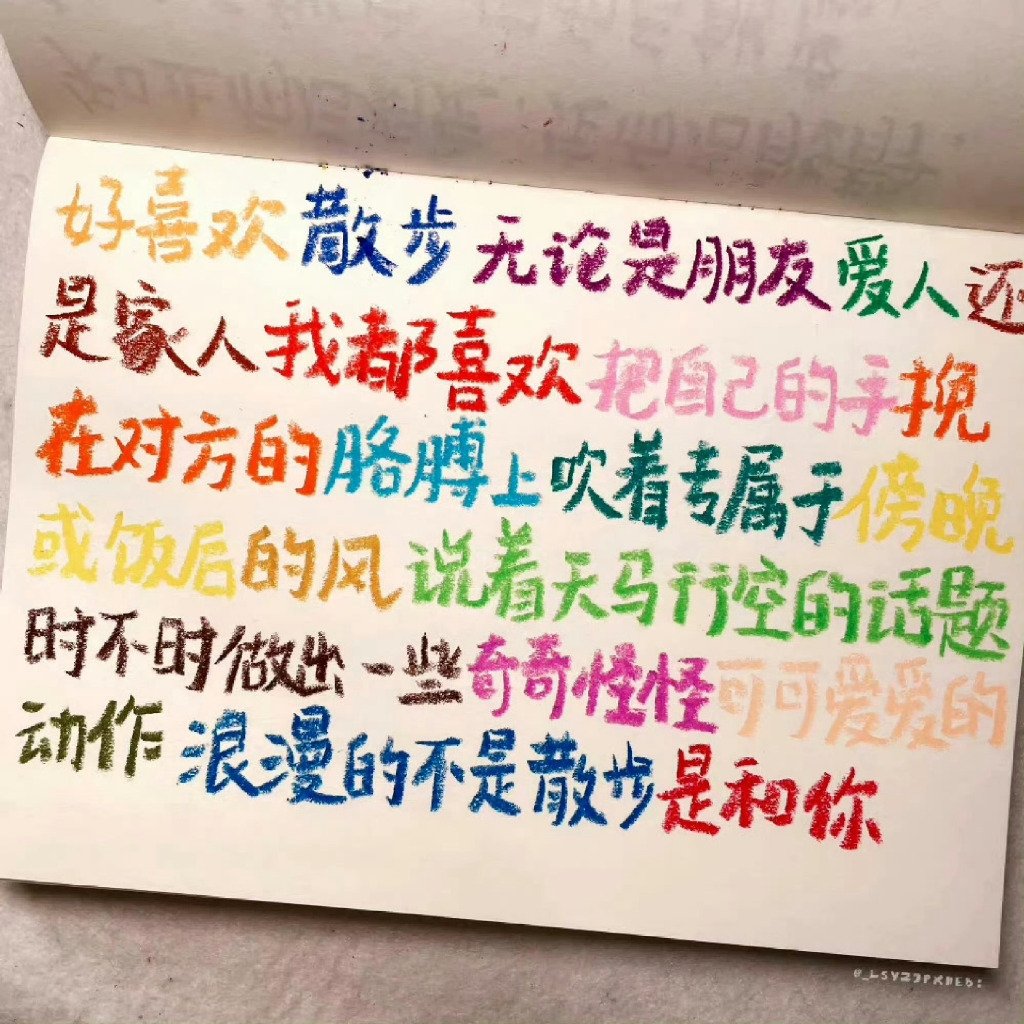 好喜欢散步 无论是朋友爱人还
是家人我都喜欢把自己的手挽
在对方的胳膊上吹着专属于傍晚
或饭后的风 说着天马行空的话题
时不时做出一些奇奇怪怪可可爱爱的
动作 浪漫的不是散步是和你